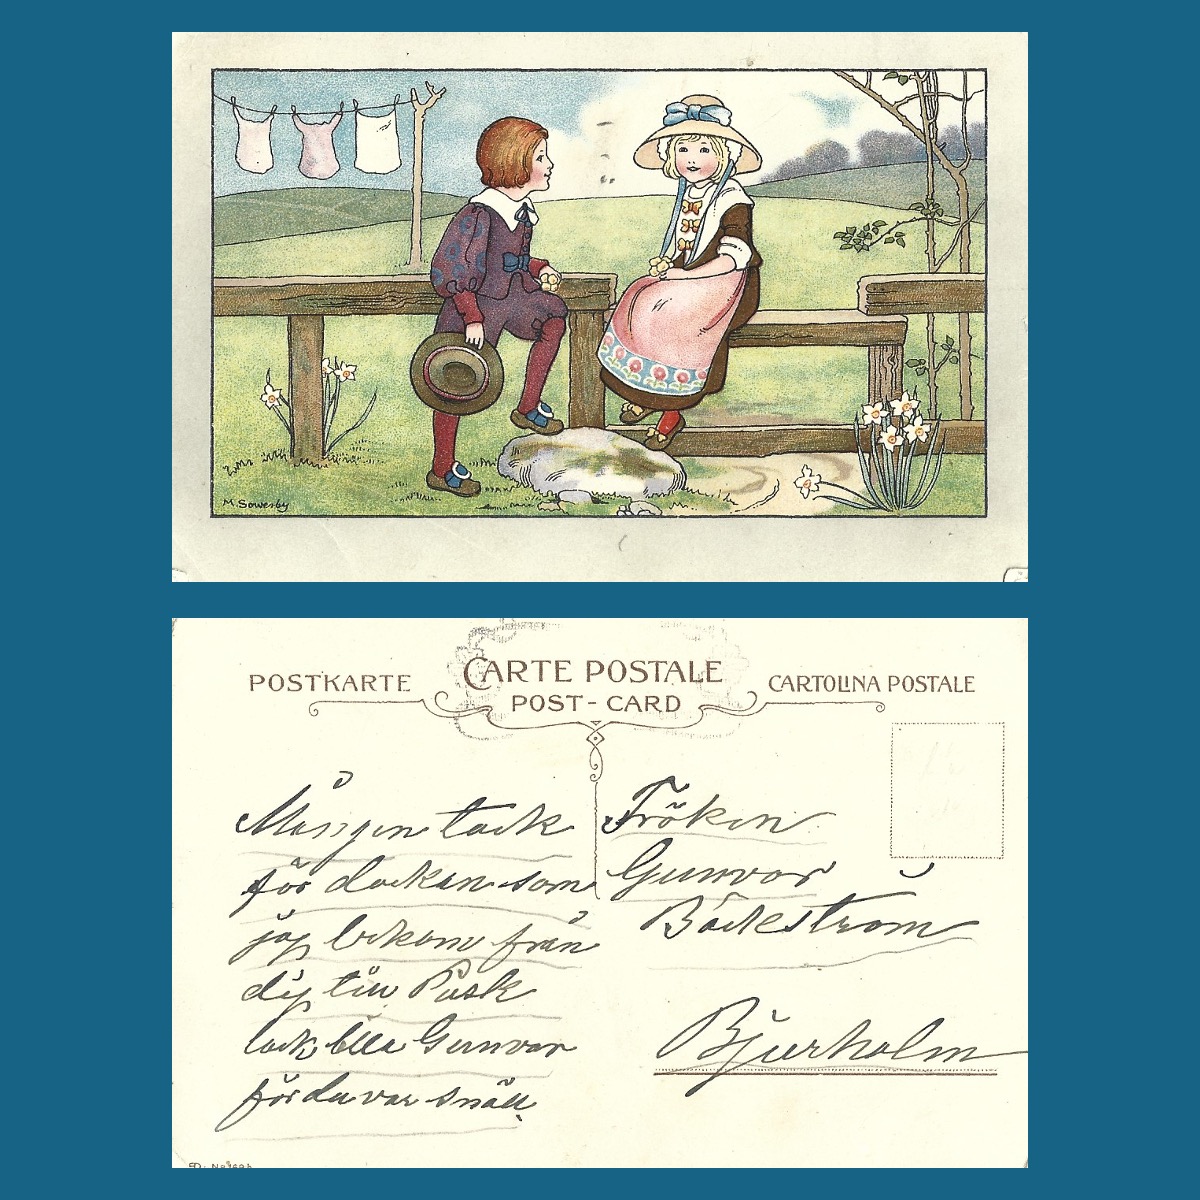 M. Sowerby
POSTKARTE
CARTE POSTALE
POST-CARD
CARTOLINA POSTALE
Mången tack
för dockan som
jag bekom från
dig till Påsk
tack lilla Gunvor
för du var snäll
Fröken
Gunvor
Bäckström
Bjurholm